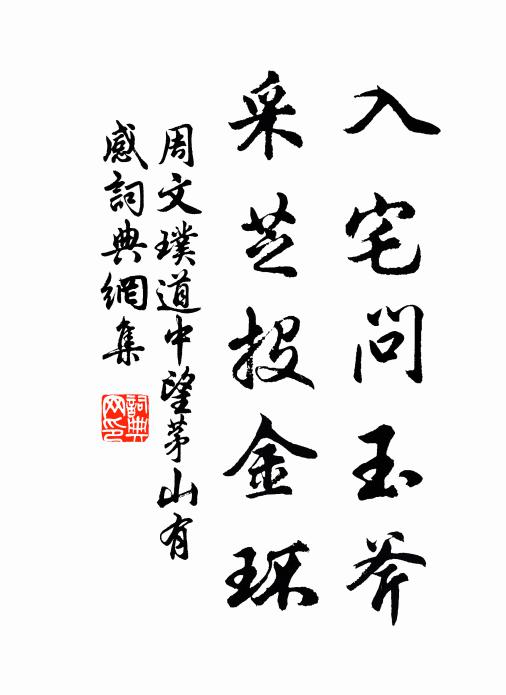 入宅問玉斧
采芝投金环
周文璞道中望茅山有
感詞典網集
詞典网印